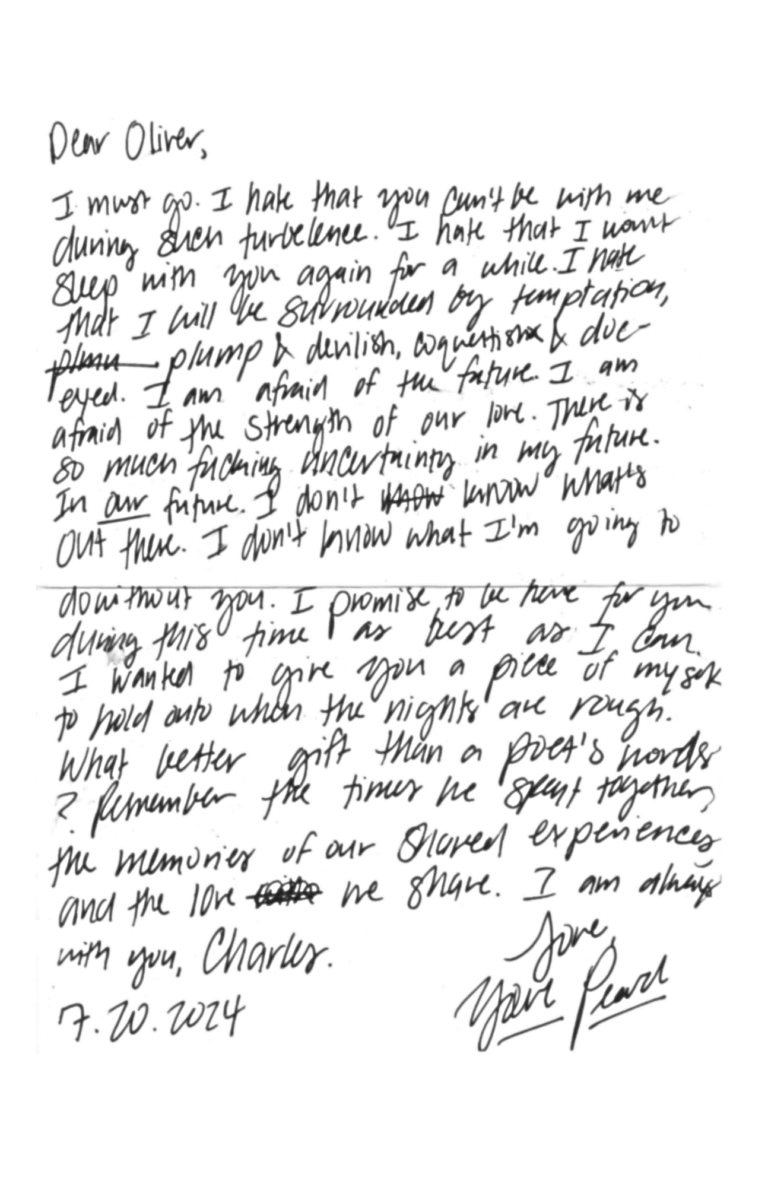 Dear Oliver,
I must go. I hate that you can't be with me
during such turbelence. I hate that I wont
sleep with you again for a while. I hate
that I will be surrounded by temptation,
plump & devilish, & doe-
eyed. I am afraid of the future. I am
afraid of the strength of our love. There is
so much fucking uncertainty in my future.
In our future. I don't know know what's
out there. I don't know what I'm going to
do without you. I promise to be here for you
during this time as best as I can.
I wanted to give you a piece of myself
to hold onto when the nights are rough.
What better gift than a poet's words
? Remember the times we spent together,
the memories of our shared experiences
and the love we share. I am always
with you, Charles.
Love,
7.20.2024
Your Pearl